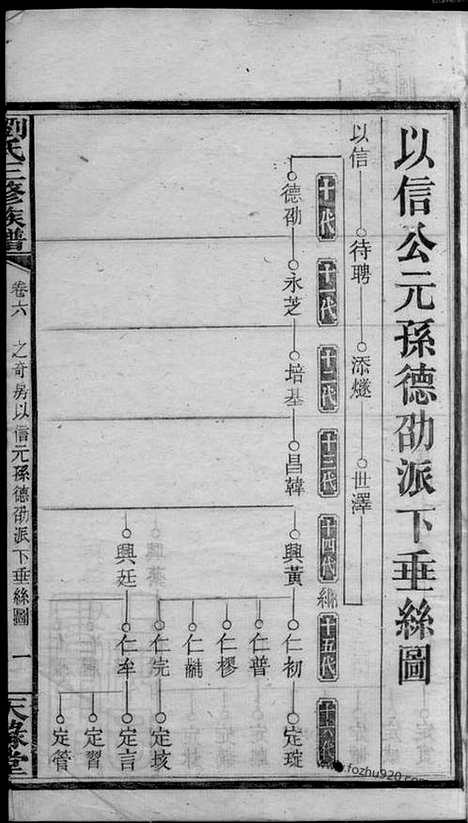 以信公元孫德劭派下垂絲圖
以信
待聘
添燧
世澤
十代
十一代
十二代
十三代
十四代
十五代
十六代
德劭
永芝
培基
昌韓
興黃
興廷
仁初
仁普
仁樛
仁黼
仁完
仁牟
定琔
定垓
定言
定習
定管
劉氏三修族譜
卷六
之奇房以信元孫德劭派下垂絲圖
一
天祿堂
fozhu920.com